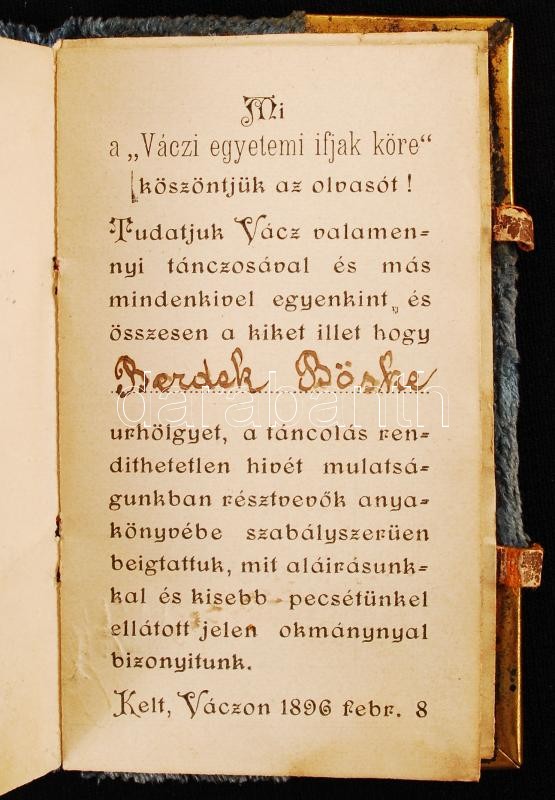 Mi
a „Váczi egyetemi ifjak köre“
köszöntjük az olvasót !
Tudatjuk Vácz valamen=
nyi tánczosával és más
mindenkivel egyenkint, és
összesen a kiket illet hogy
Berdek Böske
darabanth
urhölgyet, a táncolás ren=
dithetetlen hivét mulatsá=
gunkban résztvevők anya=
könyvébe szabályszerüen
beigtattuk, mit aláirásunk=
kal és kisebb pecsétünkel
ellátott jelen okmánynyal
bizonyitunk.
Kelt, Váczon 1896 febr. 8